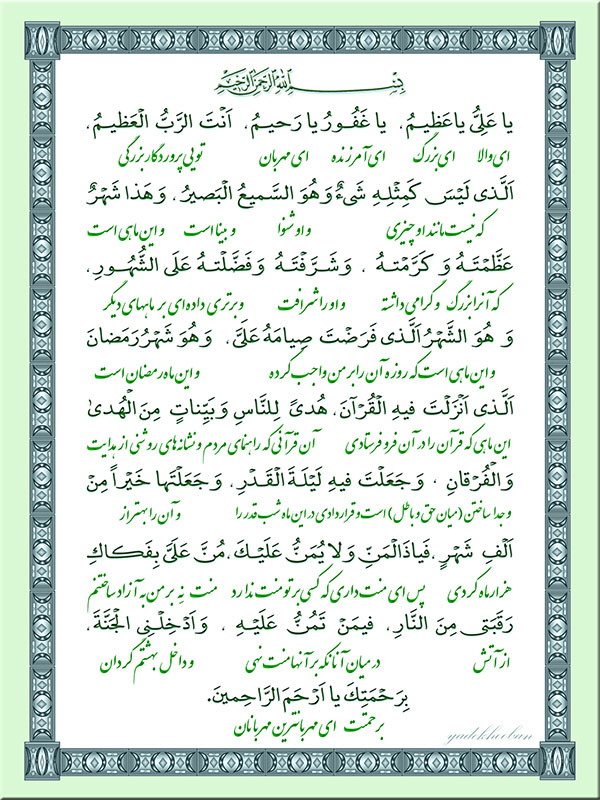 بِسْمِ اللهِ الرَّحْمنِ الرَّحیمِ
یا عَلِیُّ یا عَظیمُ، یا غَفُورُ یا رَحیمُ، اَنْتَ الرَّبُّ الْعَظیمُ،
ای والا ای بزرگ ای آمرزنده ای مهربان تویی پروردگار بزرگی
اَلَّذی لَیْسَ کَمِثْلِهِ شَیْءٌ وَهُوَ السَّمیعُ الْبَصیرُ، وَهَذا شَهْرٌ
که نیست مانند او چیزی و او شنوا و بینا است و این ماهی است
عَظَّمْتَهُ وَ کَرَّمْتَهُ ، وَشَرَّفْتَهُ وَفَضَّلْتَهُ عَلَی الشُّهُورِ،
که آنرا بزرگ و گرامی داشته و او را شرافت و برتری داده ای بر ماههای دیگر
وَ هُوَ الشَّهْرُ الَّذی فَرَضْتَ صِیامَهُ عَلَیَّ، وَهُوَ شَهْرُ رَمَضانَ
و این ماهی است که روزه آن را بر من واجب کرده و این ماه رمضان است
اَلَّذی اَنْزَلْتَ فیهِ الْقُرْآنَ، هُدیً لِلنَّاسِ وَبَیِّناتٍ مِنَ الْهُدیٰ
این ماهی که قرآن را در آن فرو فرستادی آن قرآنی که راهنمای مردم و نشانه های روشنی از هدایت
وَالْفُرْقانِ ، وَجَعَلْتَ فیهِ لَیْلَةَ الْقَدْرِ، وَجَعَلْتَها خَیْراً مِنْ
و جدا ساختن (میان حق و باطل) است و قرار دادی در این ماه شب قدر را و آن را بهتر از
اَلْفِ شَهْرٍ، فَیاذَالْمَنِّ وَلا یُمَنُّ عَلَیْكَ، مُنَّ عَلَیَّ بِفَكاكِ
هزار ماه کردی پس ای منت داری که کسی بر تو منت ندارد منت نِه بر من به آزاد ساختنم
رَقَبَتی مِنَ النَّارِ، فیمَنْ تَمُنُّ عَلَیْهِ ، وَاَدْخِلْنِی الْجَنَّةَ،
از آتش در میان آنانکه بر آنها منت نهی و داخل بهشتم گردان
بِرَحْمَتِكَ یا اَرْحَمَ الرَّاحِمینَ.
برحمتت ای مهربانترین مهربانان
yadekhooban